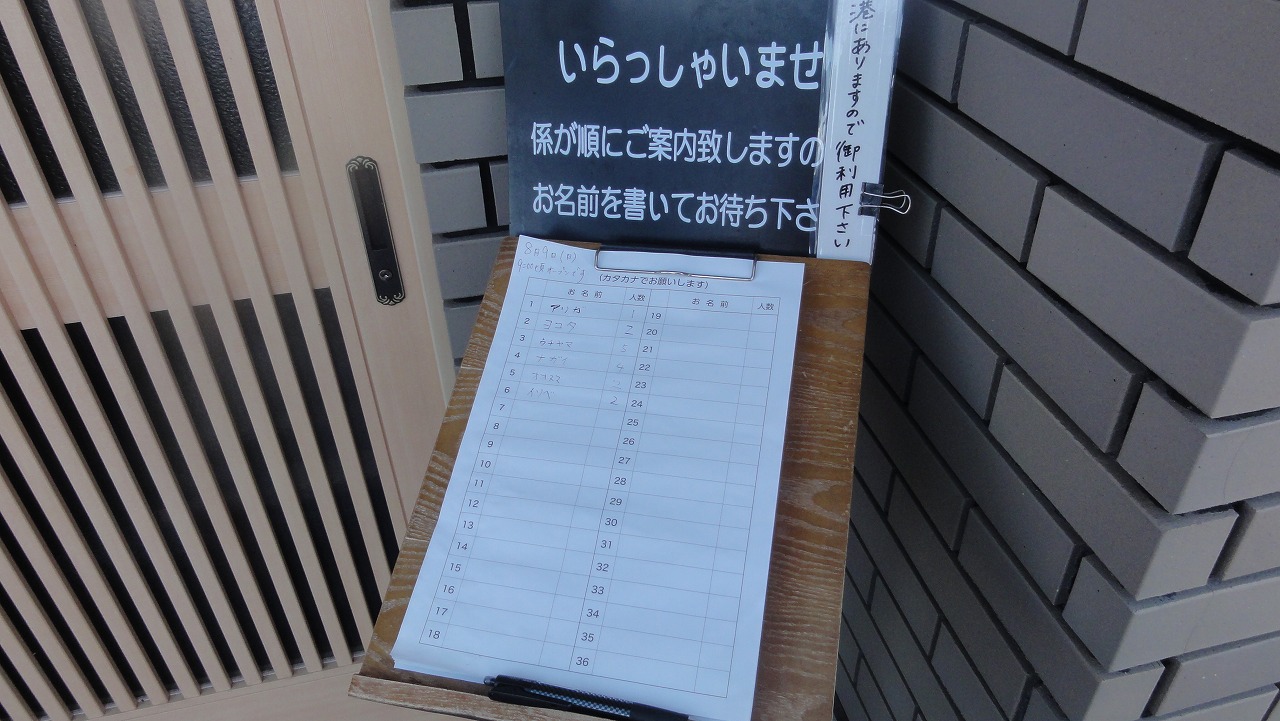 いらっしゃいませ
係が順にご案内致しますの
お名前を書いてお待ち下さ
港にありますので御利用下さい
8月9日(日)
(カタカナでお願いします)
お名前 人数 お名前 人数
1 アリカ 1 19
2 ヨコタ 2 20
3 ウチヤマ 5 21
4 ナガイ 22
5 23
6 イソベ 2 24
7 25
8 26
9 27
10 28
11 29
12 30
13 31
14 32
15 33
16 34
17 35
18 36